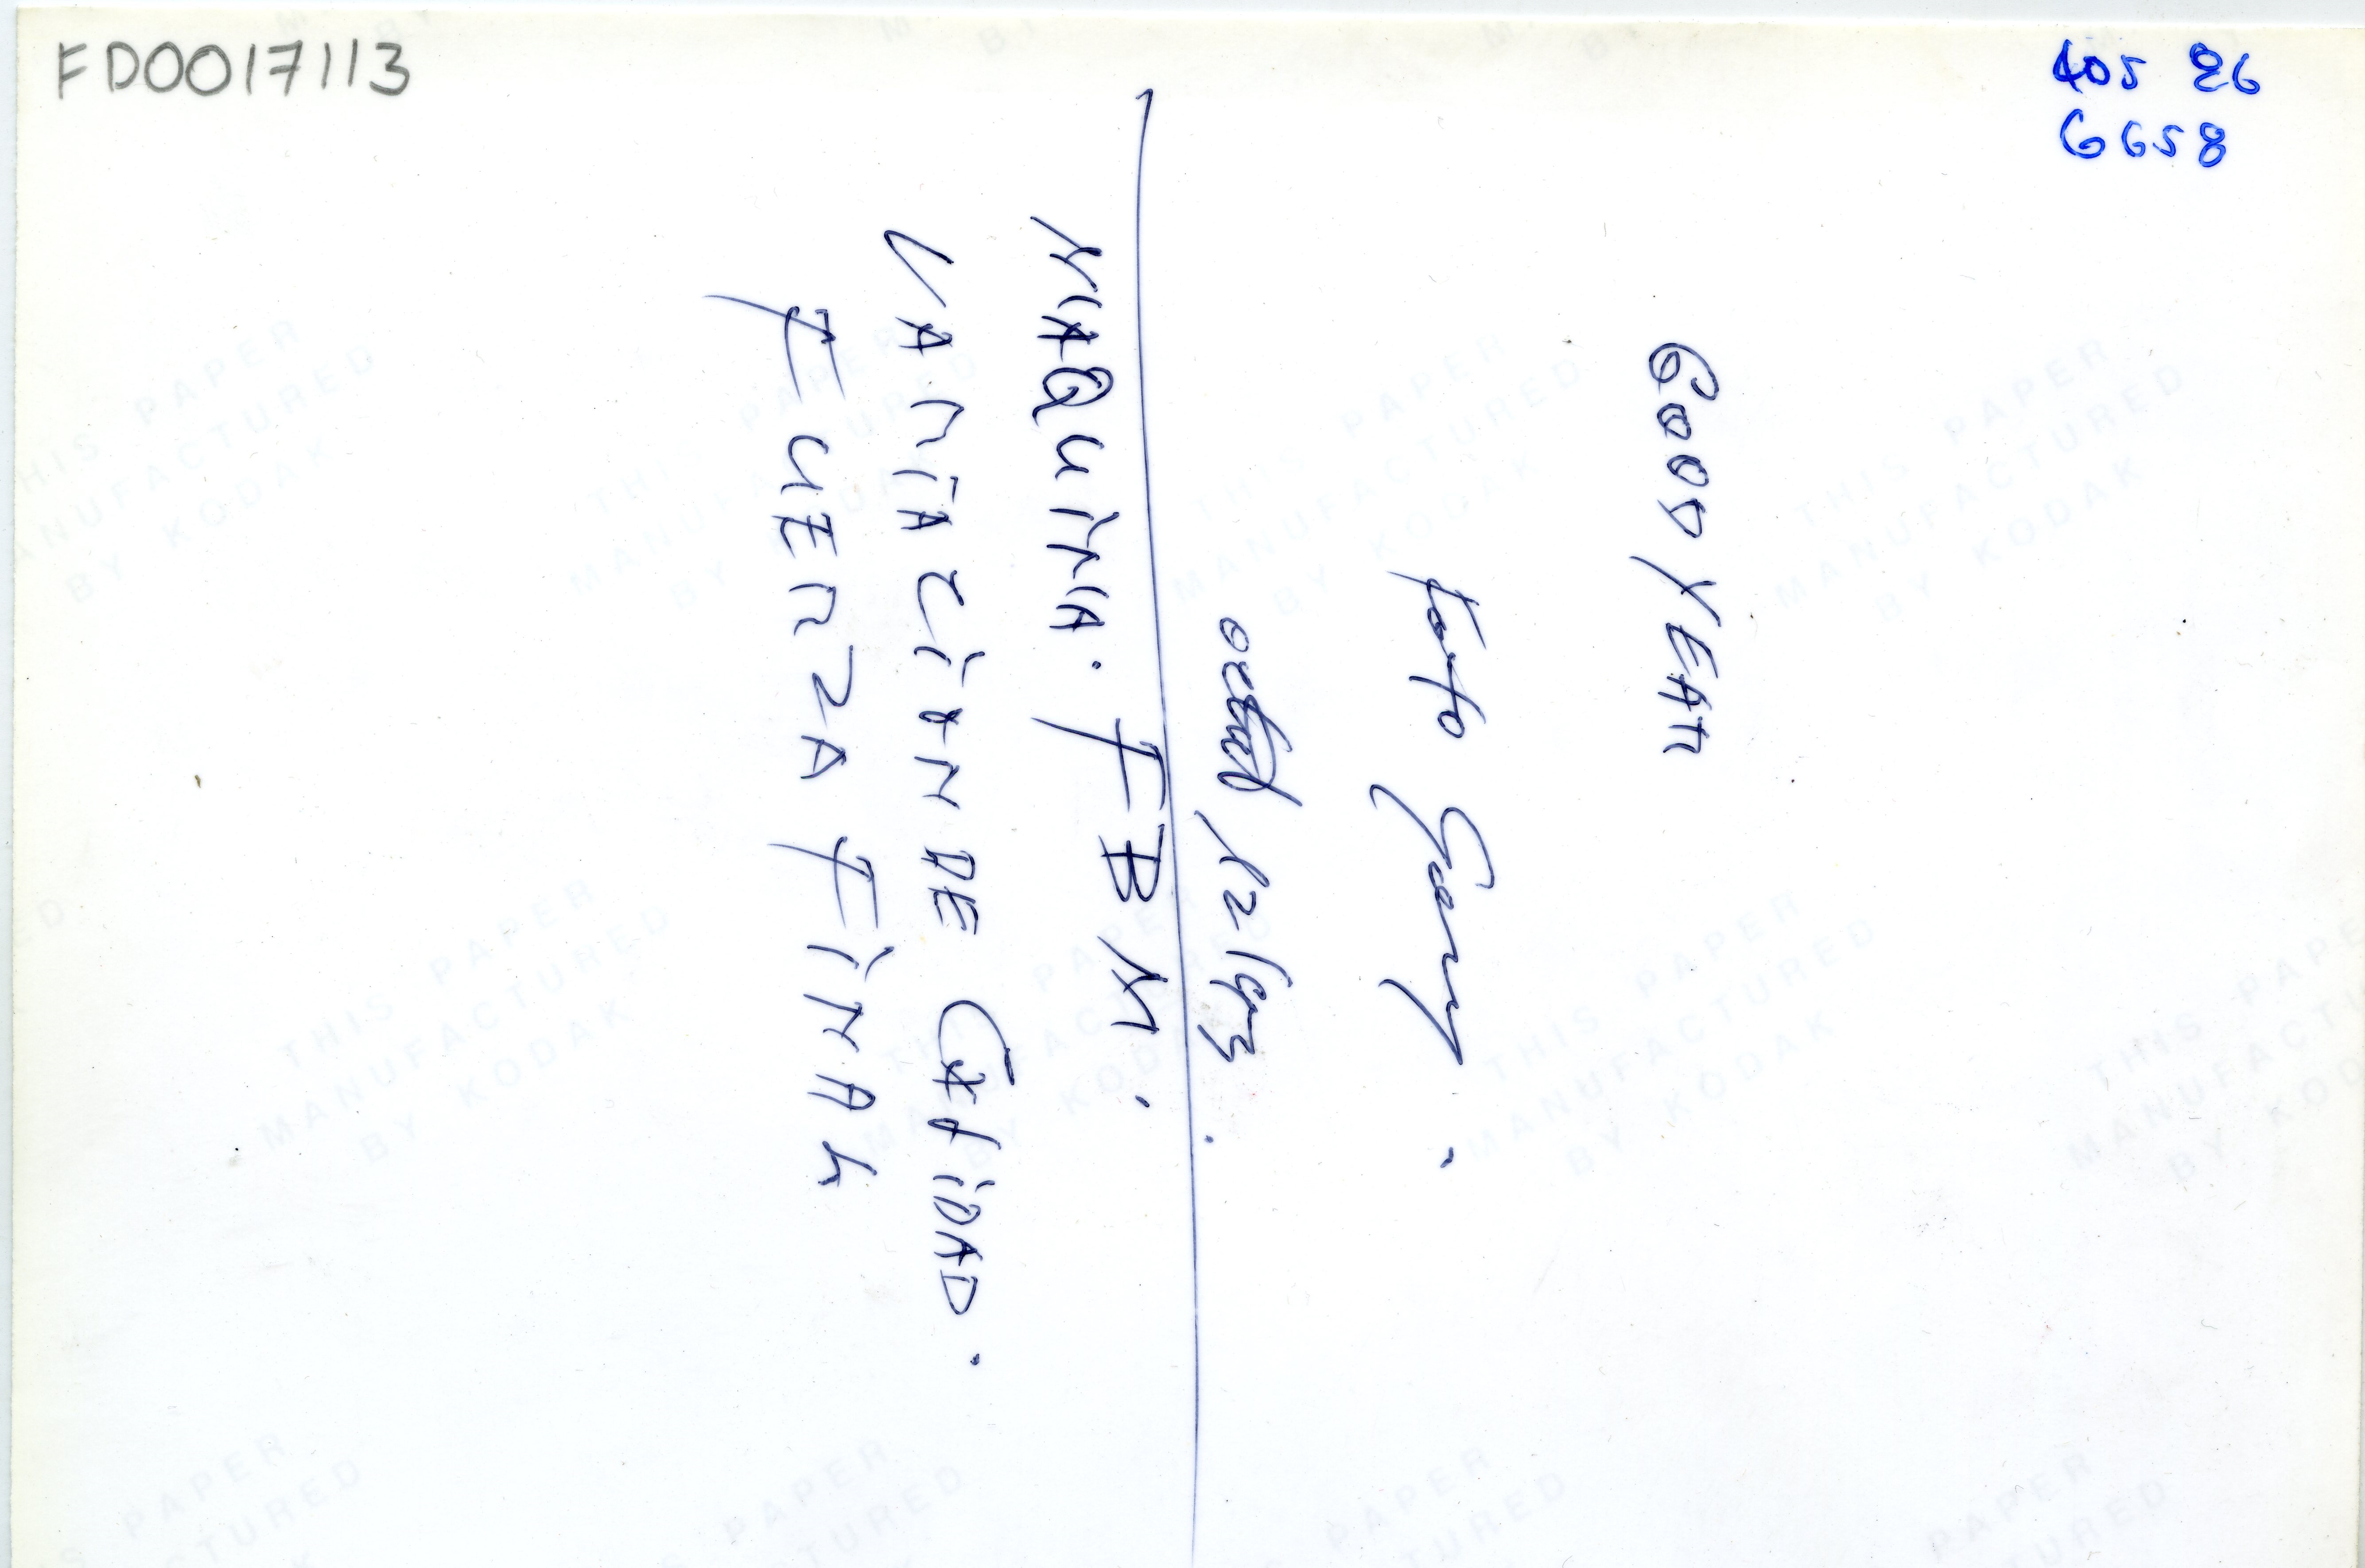 FD0017113
405 26
6658
GOOD YEAR
Foto Gary.
octub 12/93.
MAQUINA. FBM.
VARIACION DE CALIDAD.
FUERZA FINAL
THIS PAPER
MANUFACTURED
BY KODAK